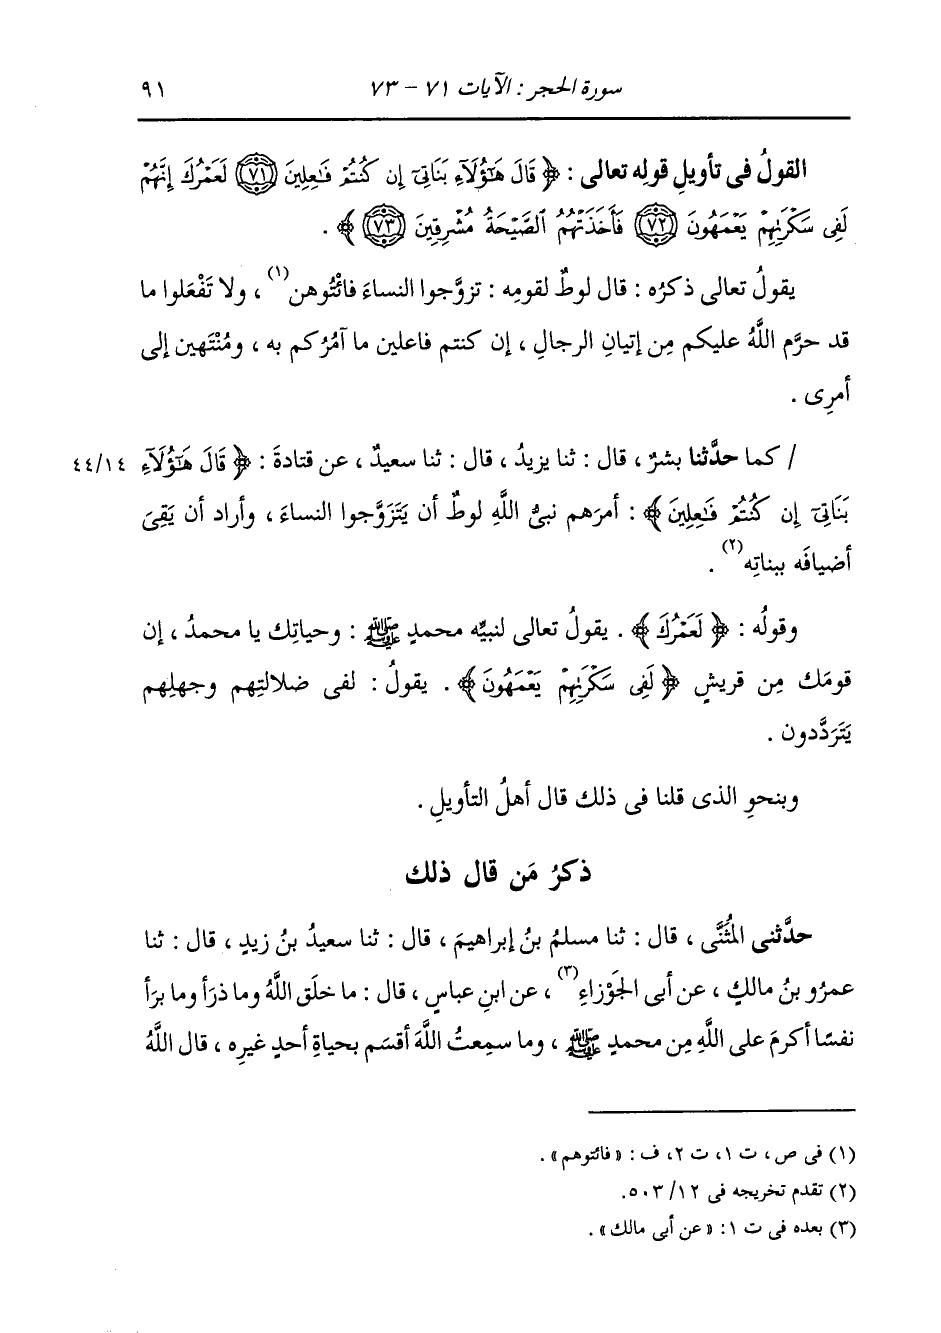 سورة الحجر : الآيات ٧١ - ٧٣ ٩١
القولُ فى تأويلِ قولِه تعالى : ﴿ قَالَ هَٰٓؤُلَآءِ بَنَاتِىٓ إِن كُنتُمْ فَٰعِلِينَ ۝٧١ لَعَمْرُكَ إِنَّهُمْ
لَفِى سَكْرَتِهِمْ يَعْمَهُونَ ۝٧٢ فَأَخَذَتْهُمُ ٱلصَّيْحَةُ مُشْرِقِينَ ۝٧٣ ﴾ .
يقولُ تعالى ذكرُه : قال لوطٌ لقومِه : تزوَّجوا النساءَ فائْتُوهن(١) ، ولا تَفْعَلوا ما
قد حرَّم اللَّهُ عليكم مِن إتيانِ الرجالِ ، إن كنتم فاعلين ما آمُرُكم به ، ومُنْتَهين إلى
أمرِى .
/ كما حدَّثنا بشرٌ ، قال : ثنا يزيدُ ، قال : ثنا سعيدٌ ، عن قتادةَ : ﴿ قَالَ هَٰٓؤُلَآءِ ٤٤/١٤
بَنَاتِىٓ إِن كُنتُمْ فَٰعِلِينَ ﴾ : أمرَهم نبىُّ اللَّهِ لوطٌ أن يَتَزَوَّجوا النساءَ ، وأراد أن يَقِىَ
أضيافَه ببناتِه(٢) .
وقولُه : ﴿ لَعَمْرُكَ ﴾ . يقولُ تعالى لنبيِّه محمدٍ ﷺ : وحياتِك يا محمدُ ، إن
قومَك مِن قريشٍ ﴿ لَفِى سَكْرَتِهِمْ يَعْمَهُونَ ﴾ . يقولُ : لفى ضلالتِهم وجهلِهم
يَتَرَدَّدون .
وبنحوِ الذى قلنا فى ذلك قال أهلُ التأويلِ .
ذكرُ مَن قال ذلك
حدَّثنى المُثنَّى ، قال : ثنا مسلمُ بنُ إبراهيمَ ، قال : ثنا سعيدُ بنُ زيدٍ ، قال : ثنا
عمرُو بنُ مالكٍ ، عن أبى الجَوْزاءِ(٣) ، عن ابنِ عباسٍ ، قال : ما خلَق اللَّهُ وما ذرَأ وما برَأ
نفسًا أكرمَ على اللَّهِ مِن محمدٍ ﷺ ، وما سمِعتُ اللَّهَ أقسَم بحياةِ أحدٍ غيرِه ، قال اللَّهُ
(١) فى ص ، ت ١، ت ٢، ف : « فائتوهم » .
(٢) تقدم تخريجه فى ١٢/ ٥٠٣.
(٣) بعده فى ت ١: « عن أبى مالك » .